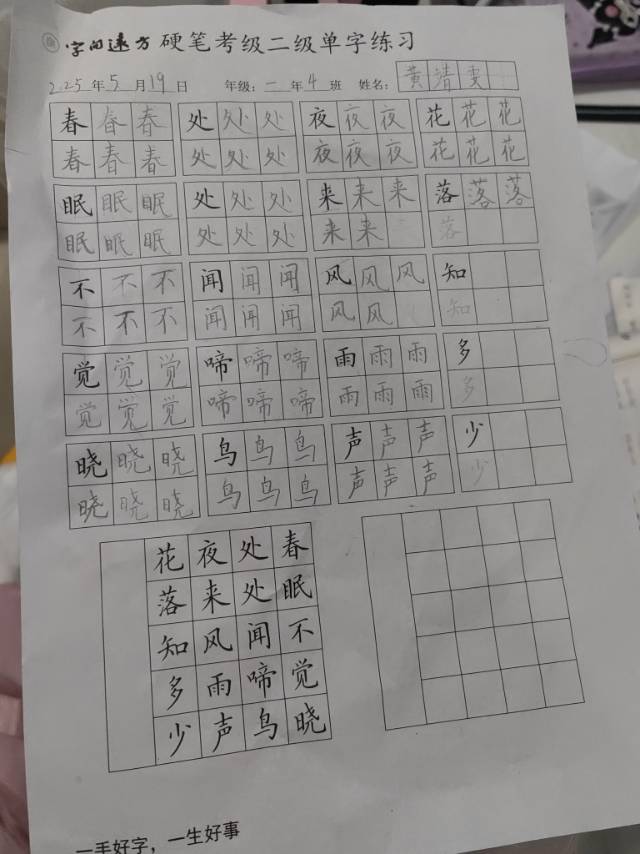 字向远方 硬笔考级二级单字练习
2025年5月19日 年级:一年4班 姓名:黄靖
春春春 处处处 夜夜夜 花花花
春春春 处处处 夜夜夜 花花花
眠眠眠 处处处 来来来 落落落
眠眠眠 处处处 来来 落
不不不 闻闻闻 风风风 知
不不不 闻闻闻 风风 知
觉觉觉 啼啼啼 雨雨雨 多
觉觉觉 啼啼啼 雨雨雨 多
晓晓晓 鸟鸟鸟 声声声 少
晓晓晓 鸟鸟鸟 声声声 少
春眠不觉晓
处处闻啼鸟
夜来风雨声
花落知多少
一手好字，一生好事